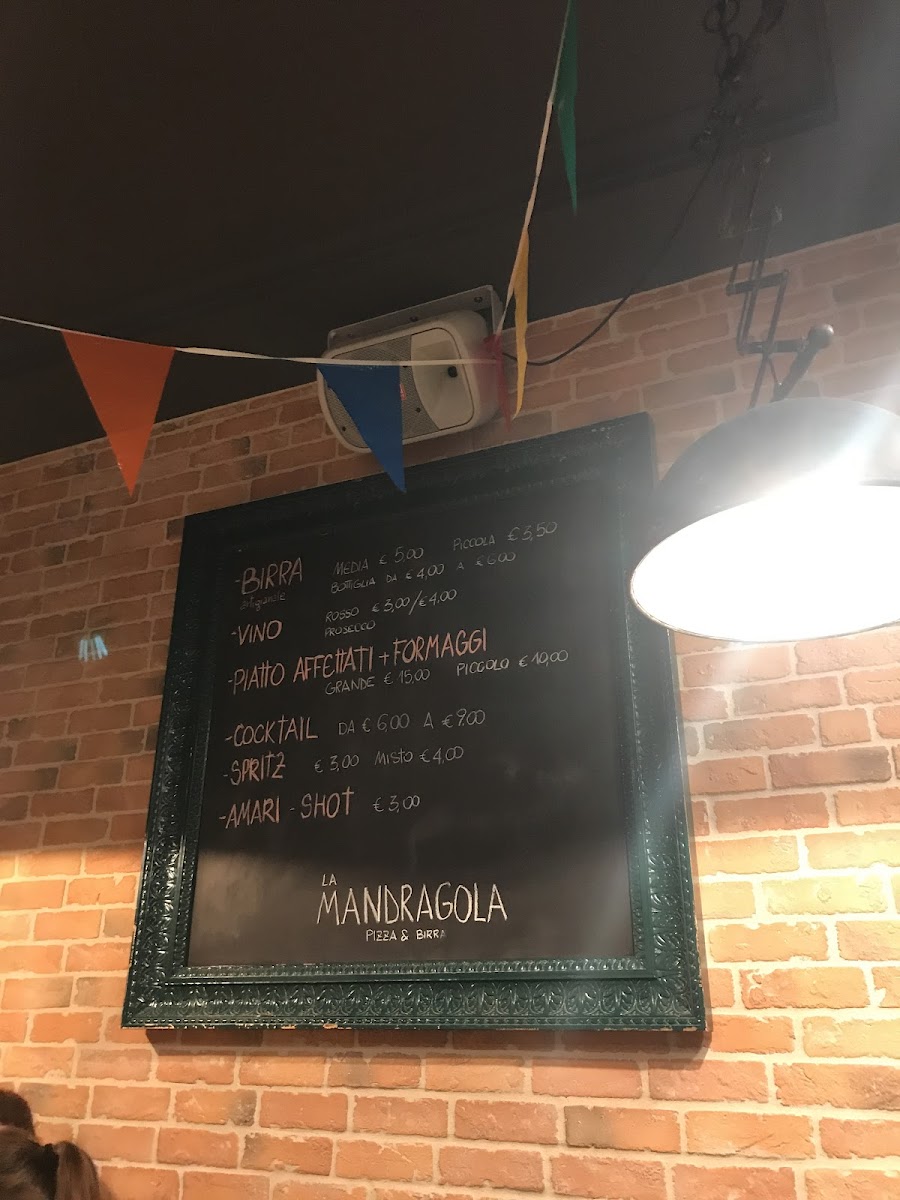 -BIRRA MEDIA € 5,00 PICCOLA € 3,50
artigianale BOTTIGLIA DA € 4,00 A € 6,00
-VINO ROSSO € 3,00/€ 4,00
PROSECCO
-PIATTO AFFETTATI + FORMAGGI
GRANDE € 15,00 PICCOLO € 10,00
-COCKTAIL DA € 6,00 A € 9.00
-SPRITZ € 3,00 MISTO € 4,00
-AMARI - SHOT € 3,00
LA
MANDRAGOLA
PIZZA & BIRRA